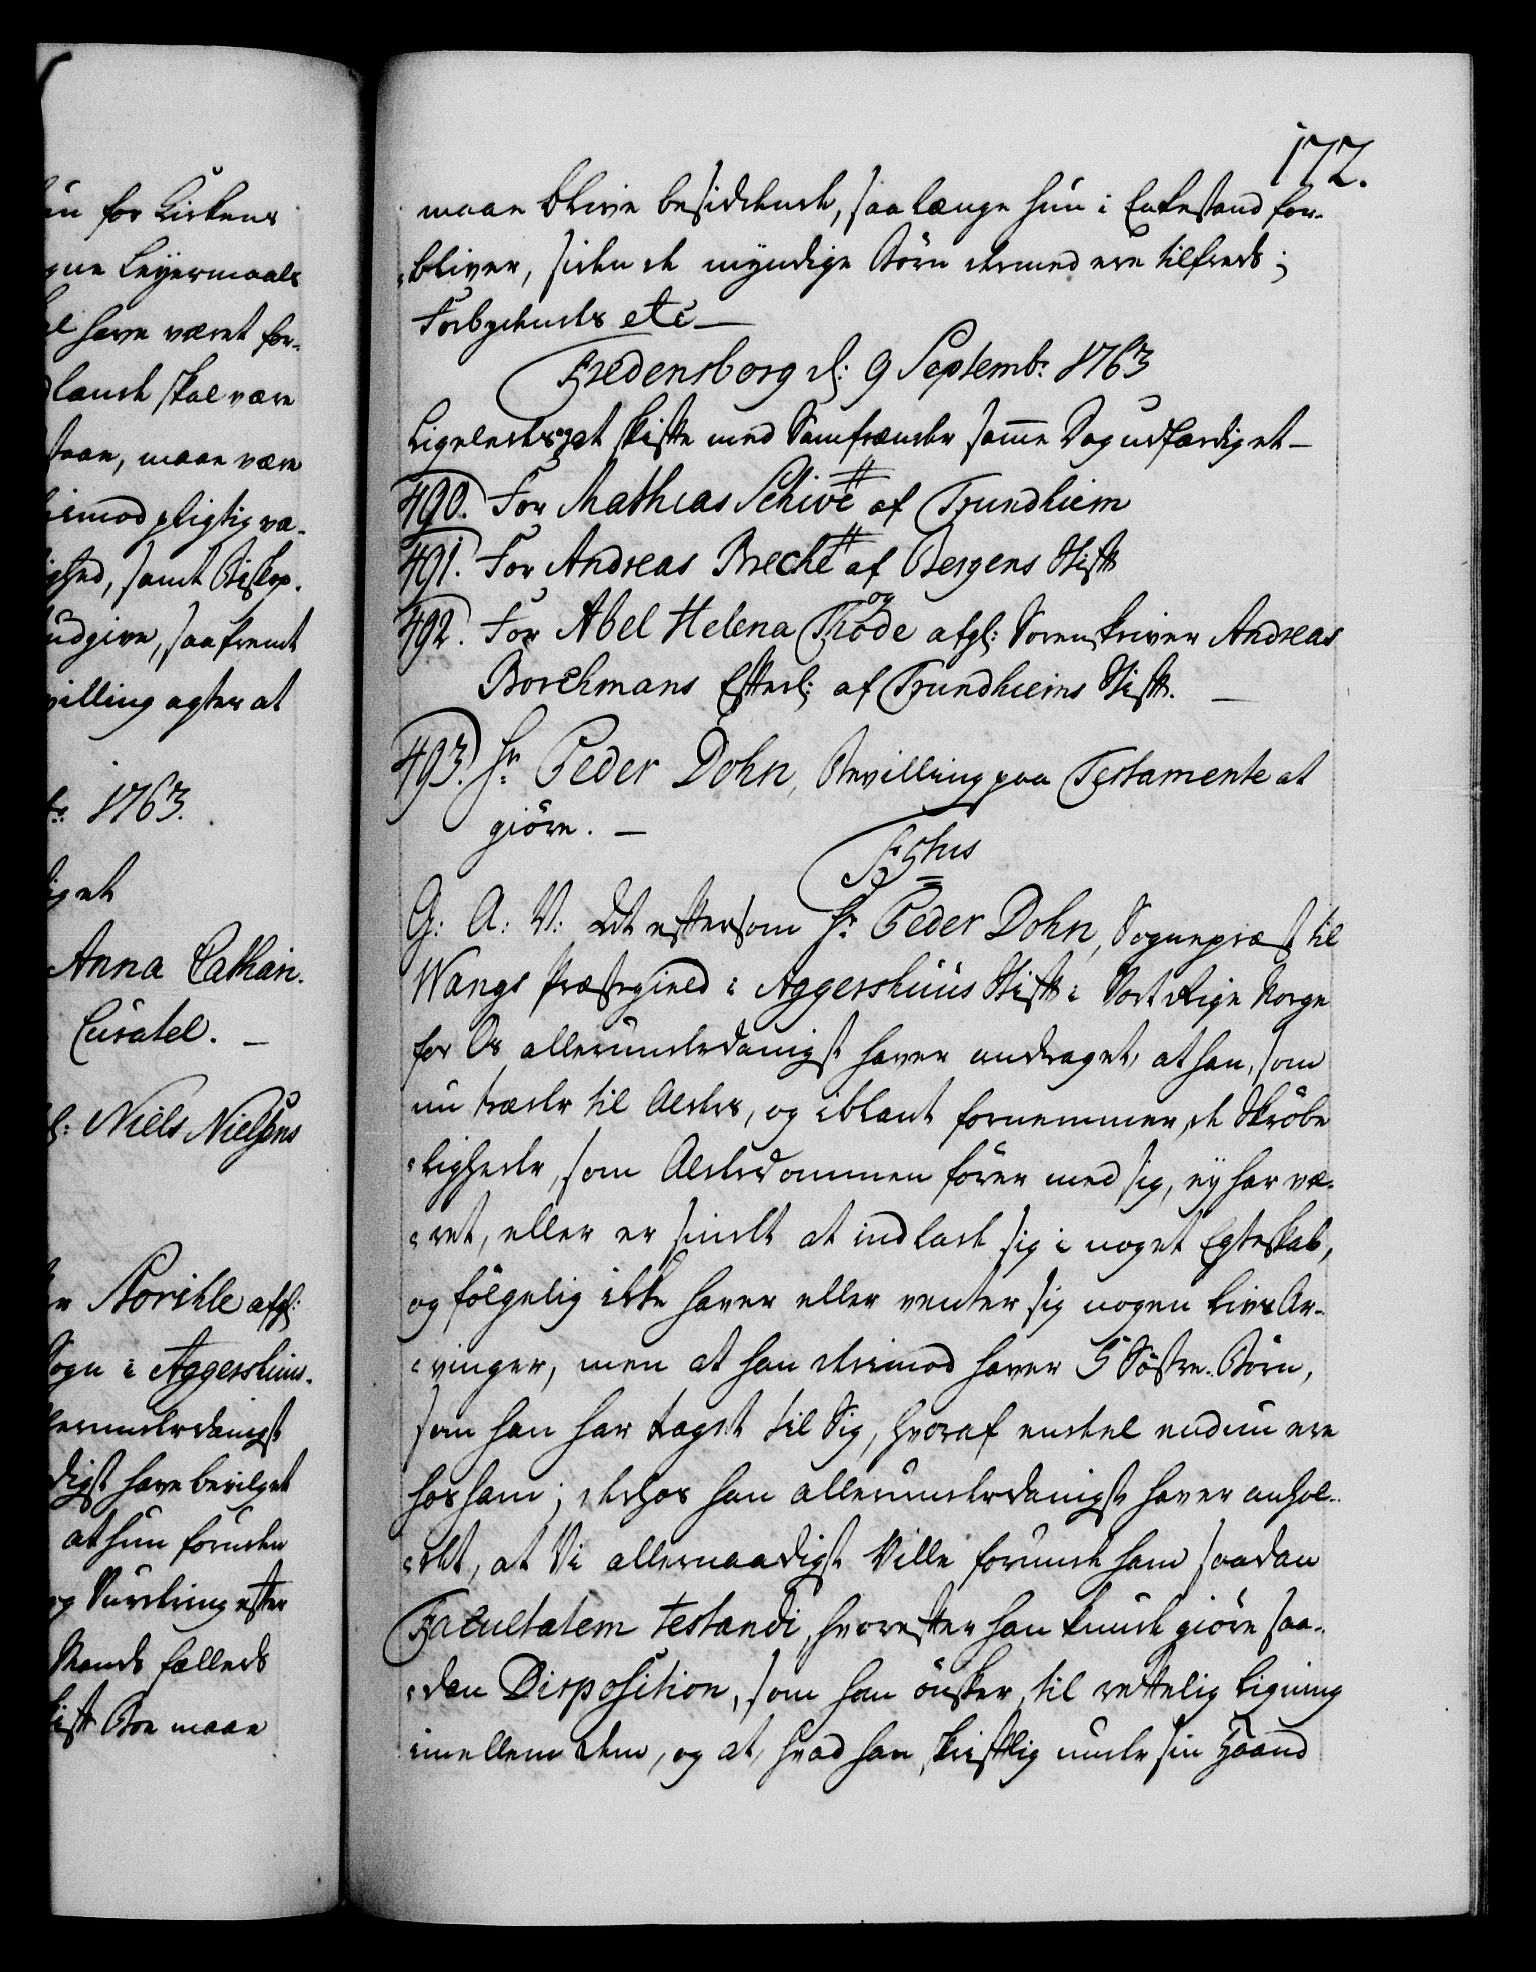 un for Kirkens
gne Leyermaals
el have været for-
lande skal være
staae, maae være
imod pligtig væ-
ighed, samt Biskop.
udgive, saafremt
villing agter at
br: 1763.
iget
Anna Cathari.
Curatel. —
l: Niels Nielsens
afgl:
Sogn i Aggershuus-
lerunderdanigst
digst have bevilget
at hun foruden
og Vurdering efter
Mands fælleds
Boe maae
172.
maae blive besiddende, saa længe hun i Enkestand for-
bliver, siden de myndige Børn dermed ere tilfreds;
Forbydendes etc —
Fredensborg d: 9 Septembr: 1763
Ligeledes at skifte med Samfrænder samme Dag udfærdiget —
490. For Mathias Schive af Trundhiem
491. For Andreas Breche af Bergens Stift
492. For Abel Helena Thode og afgl: Sorenskriver Andreas
Borchmans Efterl: af Trundhiems Stift. —
493. Hr Peder Dohn, Bevilling paa Testamente at
giøre. —
F5tus
G: A: V: at eftersom Hr: Peder Dohn, Sognepræst til
Wangs Præstegield i Aggershuus Stift i Vort Rige Norge
for Os allerunderdanigst haver andraget, at han, som
nu træder til Alders, og iblant fornemmer, de Skrøbe-
ligheder, som Alderdommen fører med sig, ey har væ-
ret, eller er sindet at indlade sig i noget Egteskab,
og følgelig ikke haver eller venter sig nogen Livs Ar-
vinger, men at han derimod haver 5 Søstre-Børn,
som han har taget til Sig, hvoraf endeel endnu ere
hos ham; derhos han allerunderdanigst haver anhol-
det, at Vi allernaadigst Ville forunde ham saadan
Facultatem testandi, hvorefter han kunde giøre saa-
dan Disposition, som han ønsker, til rettelig Ligning
imellem dem, og at, hvad han skriftlig under sin Haand